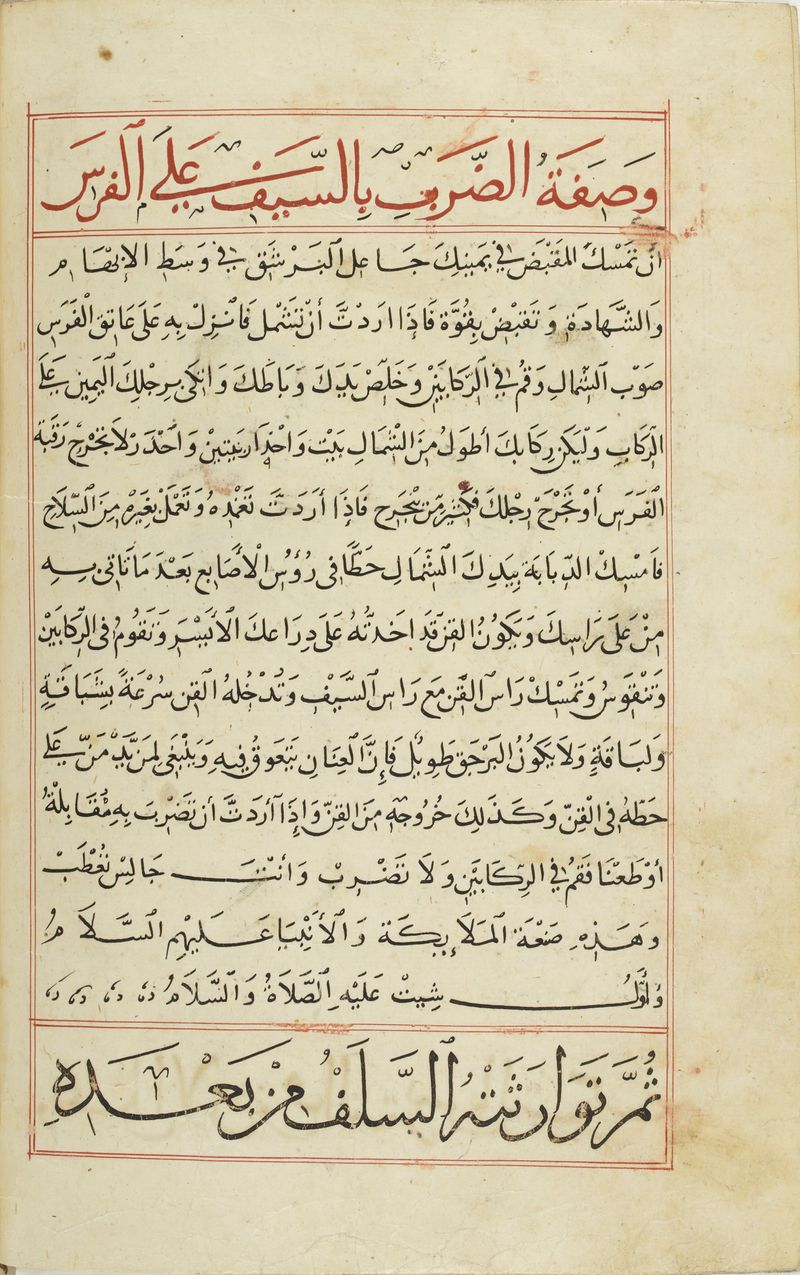 وَصِفَةُ الضَّرْبِ بِالسَّيْفِ عَلَى الْفَرَسِ
أن تمسك المقبض في يمينك جاعل البرشق في وسط الابهام
والشهادة وتقبض بقوة فإذا اردت أن تنشمل فانزل به على عاتق الفرس
صوب الشمال وقم في الركابين وخلص يديك وباطك واتكى برجلك اليمين على
الركاب وليكن ركابك أطول من الشمال بيت واحد اربيتين واحذر لا تخرج رقبة
الفرس أو تجرح رجلك فكثير من ينجرح فإذا أردت تغمده وتعمل بغيره من السلاح
فامسك الدبابة بيدك الشمال حطا في رؤس الأصابع بعد ما تاتى به
من على راسك ويكون القن قد اخدته على دراعك الأيسر وتقوم في الركابين
وتنقوس وتمسك راس القن مع راس السيف وتدخله القن سرعة بشباقة
ولباقة ولا يكون البرجق طويل فإن العنان يتعوق فيه وينبغى لمن يدمن على
حطه في القن وكذلك خروجه من القن وإذا أردت أن تضرب به مقابلة
أو طعنا فقم في الركابين ولا تضرب وأنت جالس تغطب
وهذه صنعة الملايكة والأنبيا عليهم السلام
وأول شيت عليه الصلاة والسلام
ثُمَّ تَوَارَثَتْهُ السَّلَفُ مِنْ بَعْدِهِ